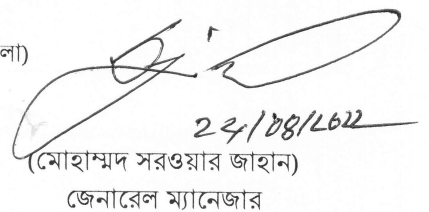 লা)
24/08/2022
(মোহাম্মদ সরওয়ার জাহান)
জেনারেল ম্যানেজার